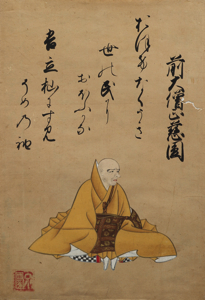 前大僧正慈圓
おほけなくうき
世の民に
おほふかな
吾立杣にすみ
そめの袖